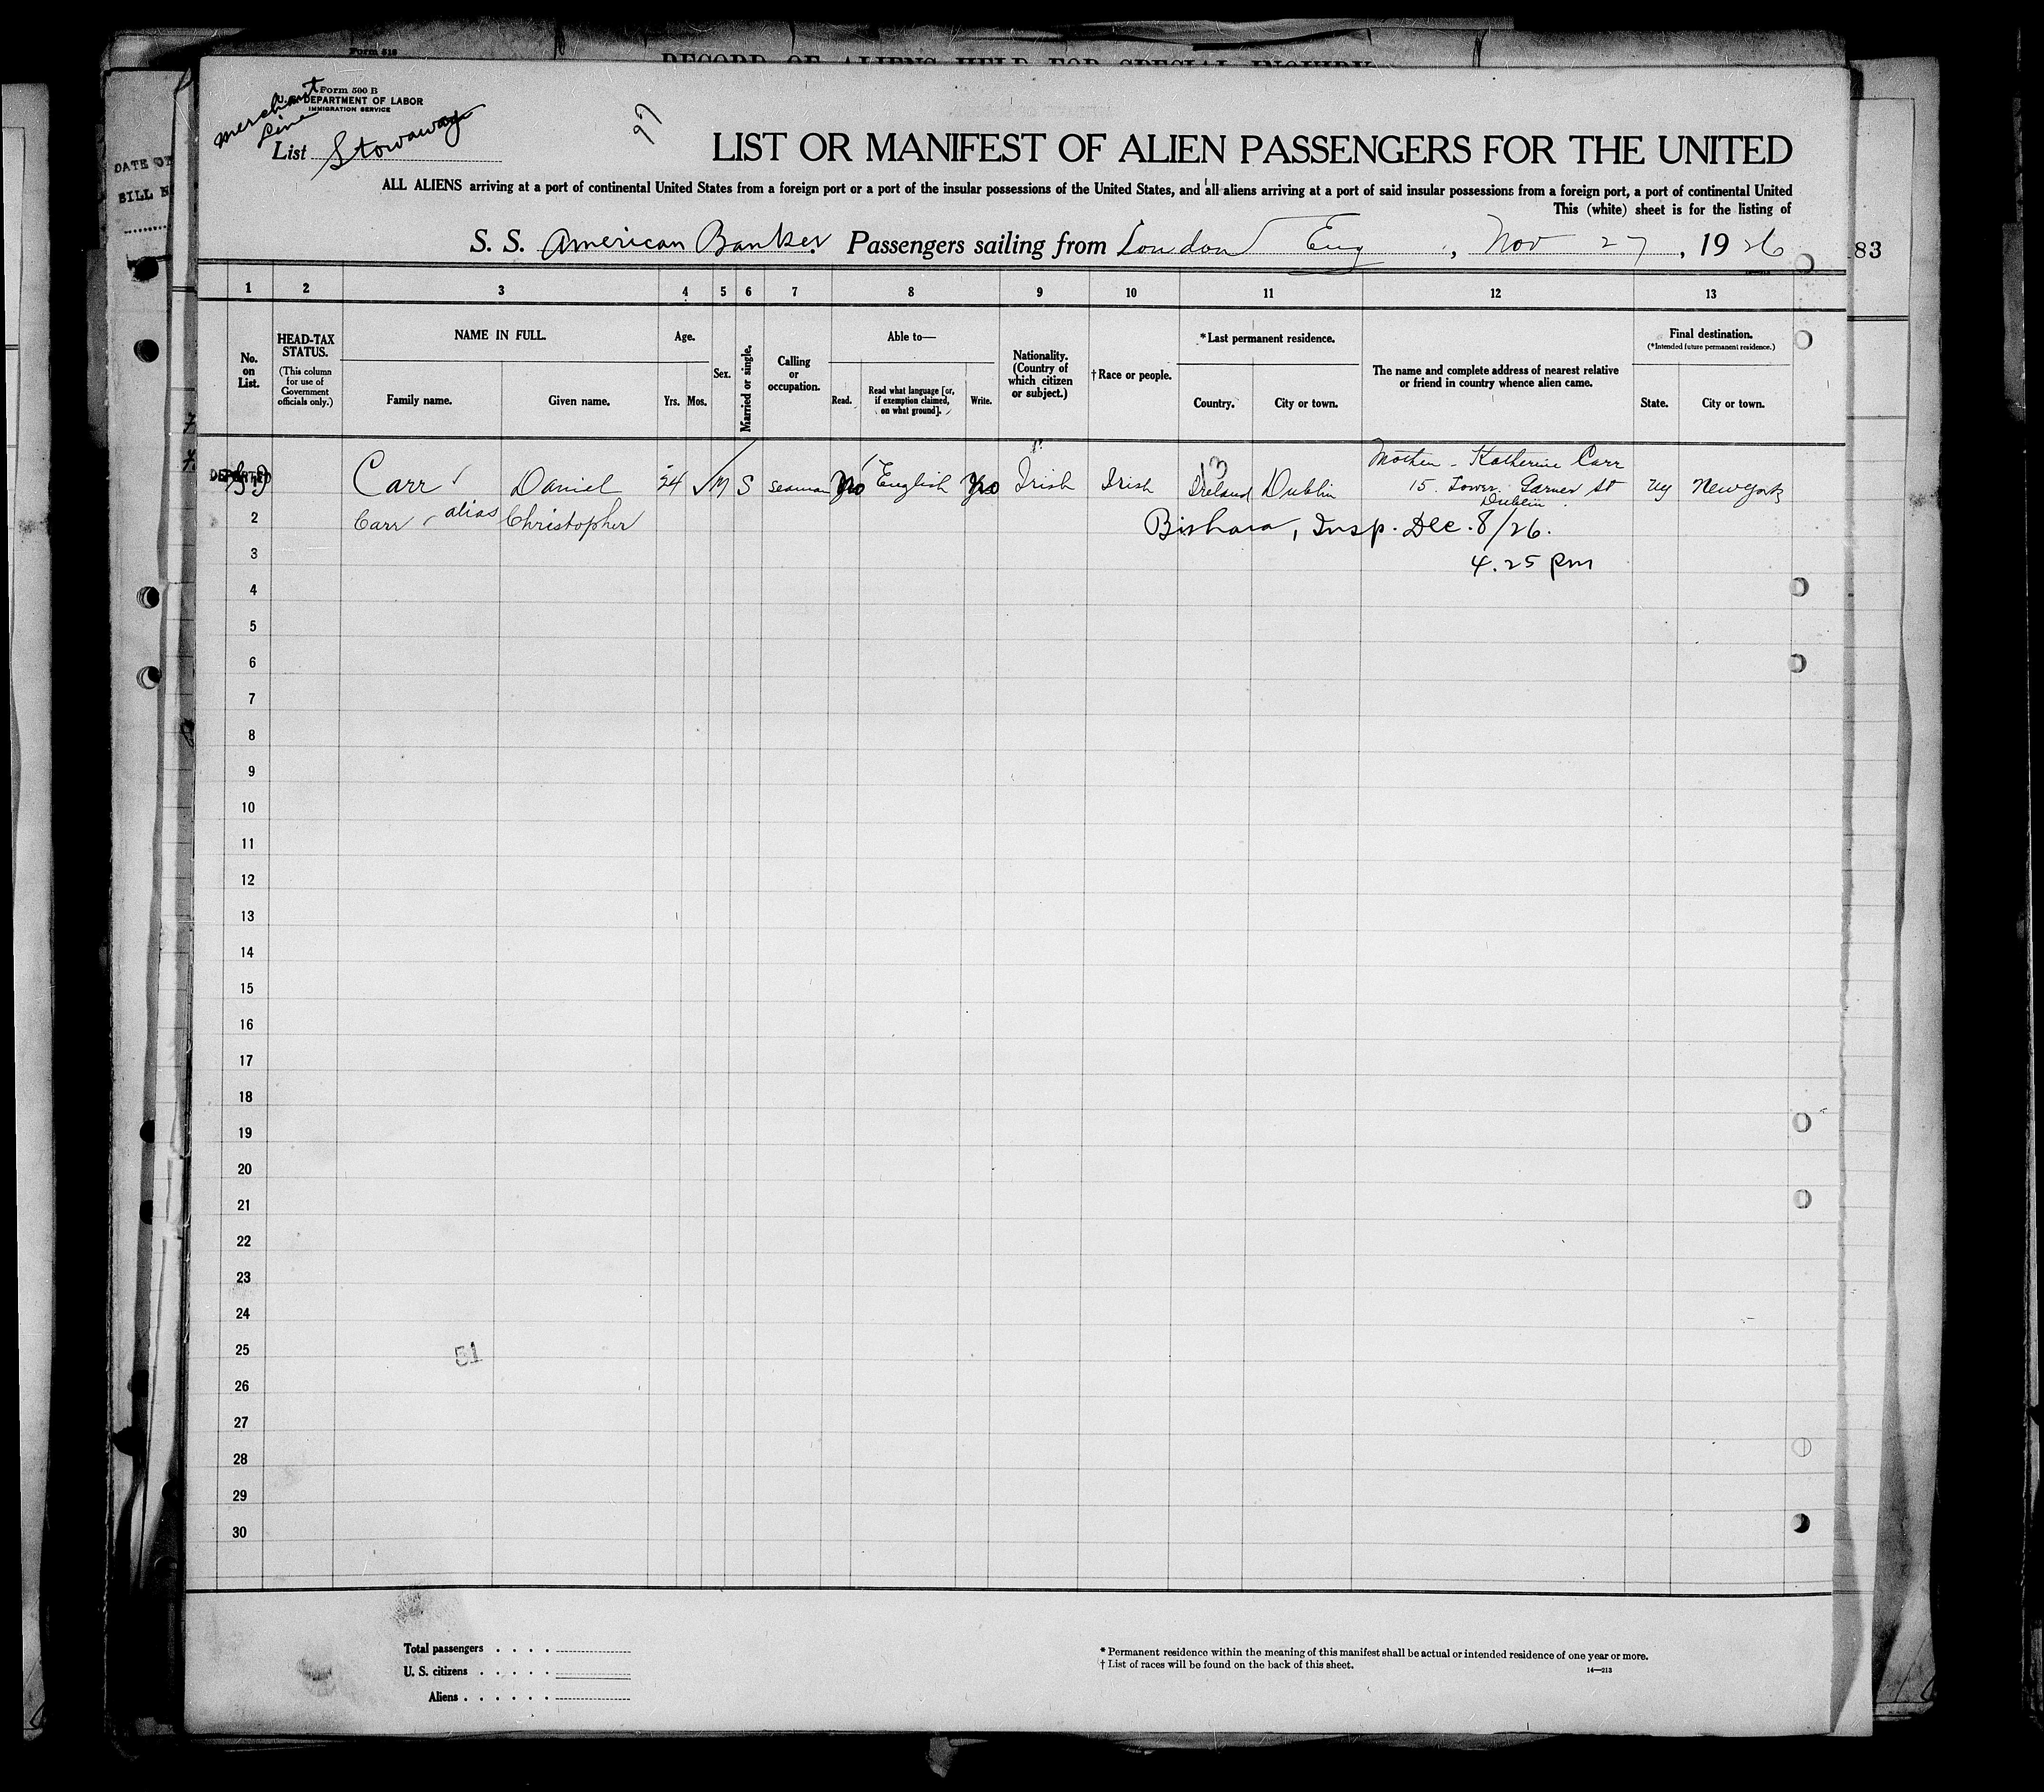 Form 518
RECORD OF ALIENS HELD FOR SPECIAL INQUIRY
DATE OF
BILL
83
Form 500 B
U. S. DEPARTMENT OF LABOR
IMMIGRATION SERVICE
Merchant
Line
List Stowaway
97
LIST OR MANIFEST OF ALIEN PASSENGERS FOR THE UNITED
ALL ALIENS arriving at a port of continental United States from a foreign port or a port of the insular possessions of the United States, and all aliens arriving at a port of said insular possessions from a foreign port, a port of continental United
This (white) sheet is for the listing of
S. S. American Banker Passengers sailing from London Eng, Nov 27, 1926
1 2 3 4 5 6 7 8 9 10 11 12 13
No. on List.
HEAD-TAX STATUS.
(This column for use of Government officials only.)
NAME IN FULL.
Family name. Given name.
Age.
Yrs. Mos.
Sex.
Married or single.
Calling or occupation.
Able to—
Read. Read what language [or, if exemption claimed, on what ground]. Write.
Nationality. (Country of which citizen or subject.)
†Race or people.
*Last permanent residence.
Country. City or town.
The name and complete address of nearest relative or friend in country whence alien came.
Final destination.
(*Intended future permanent residence.)
State. City or town.
13 Mother - Katherine Carr
DEPORTED Carr Daniel 24 M S seaman English Irish Irish Ireland Dublin 15 Lower Garner St NY New York
Dublin
2 Carr alias Christopher Bishara, Insp. Dec. 8/26.
3 4.25 pm
4
5
6
7
8
9
10
11
12
13
14
15
16
17
18
19
20
21
22
23
24
25 51
26
27
28
29
30
Total passengers . . . .
U. S. citizens . . . . .
Aliens . . . . . .
* Permanent residence within the meaning of this manifest shall be actual or intended residence of one year or more.
† List of races will be found on the back of this sheet. 14—213